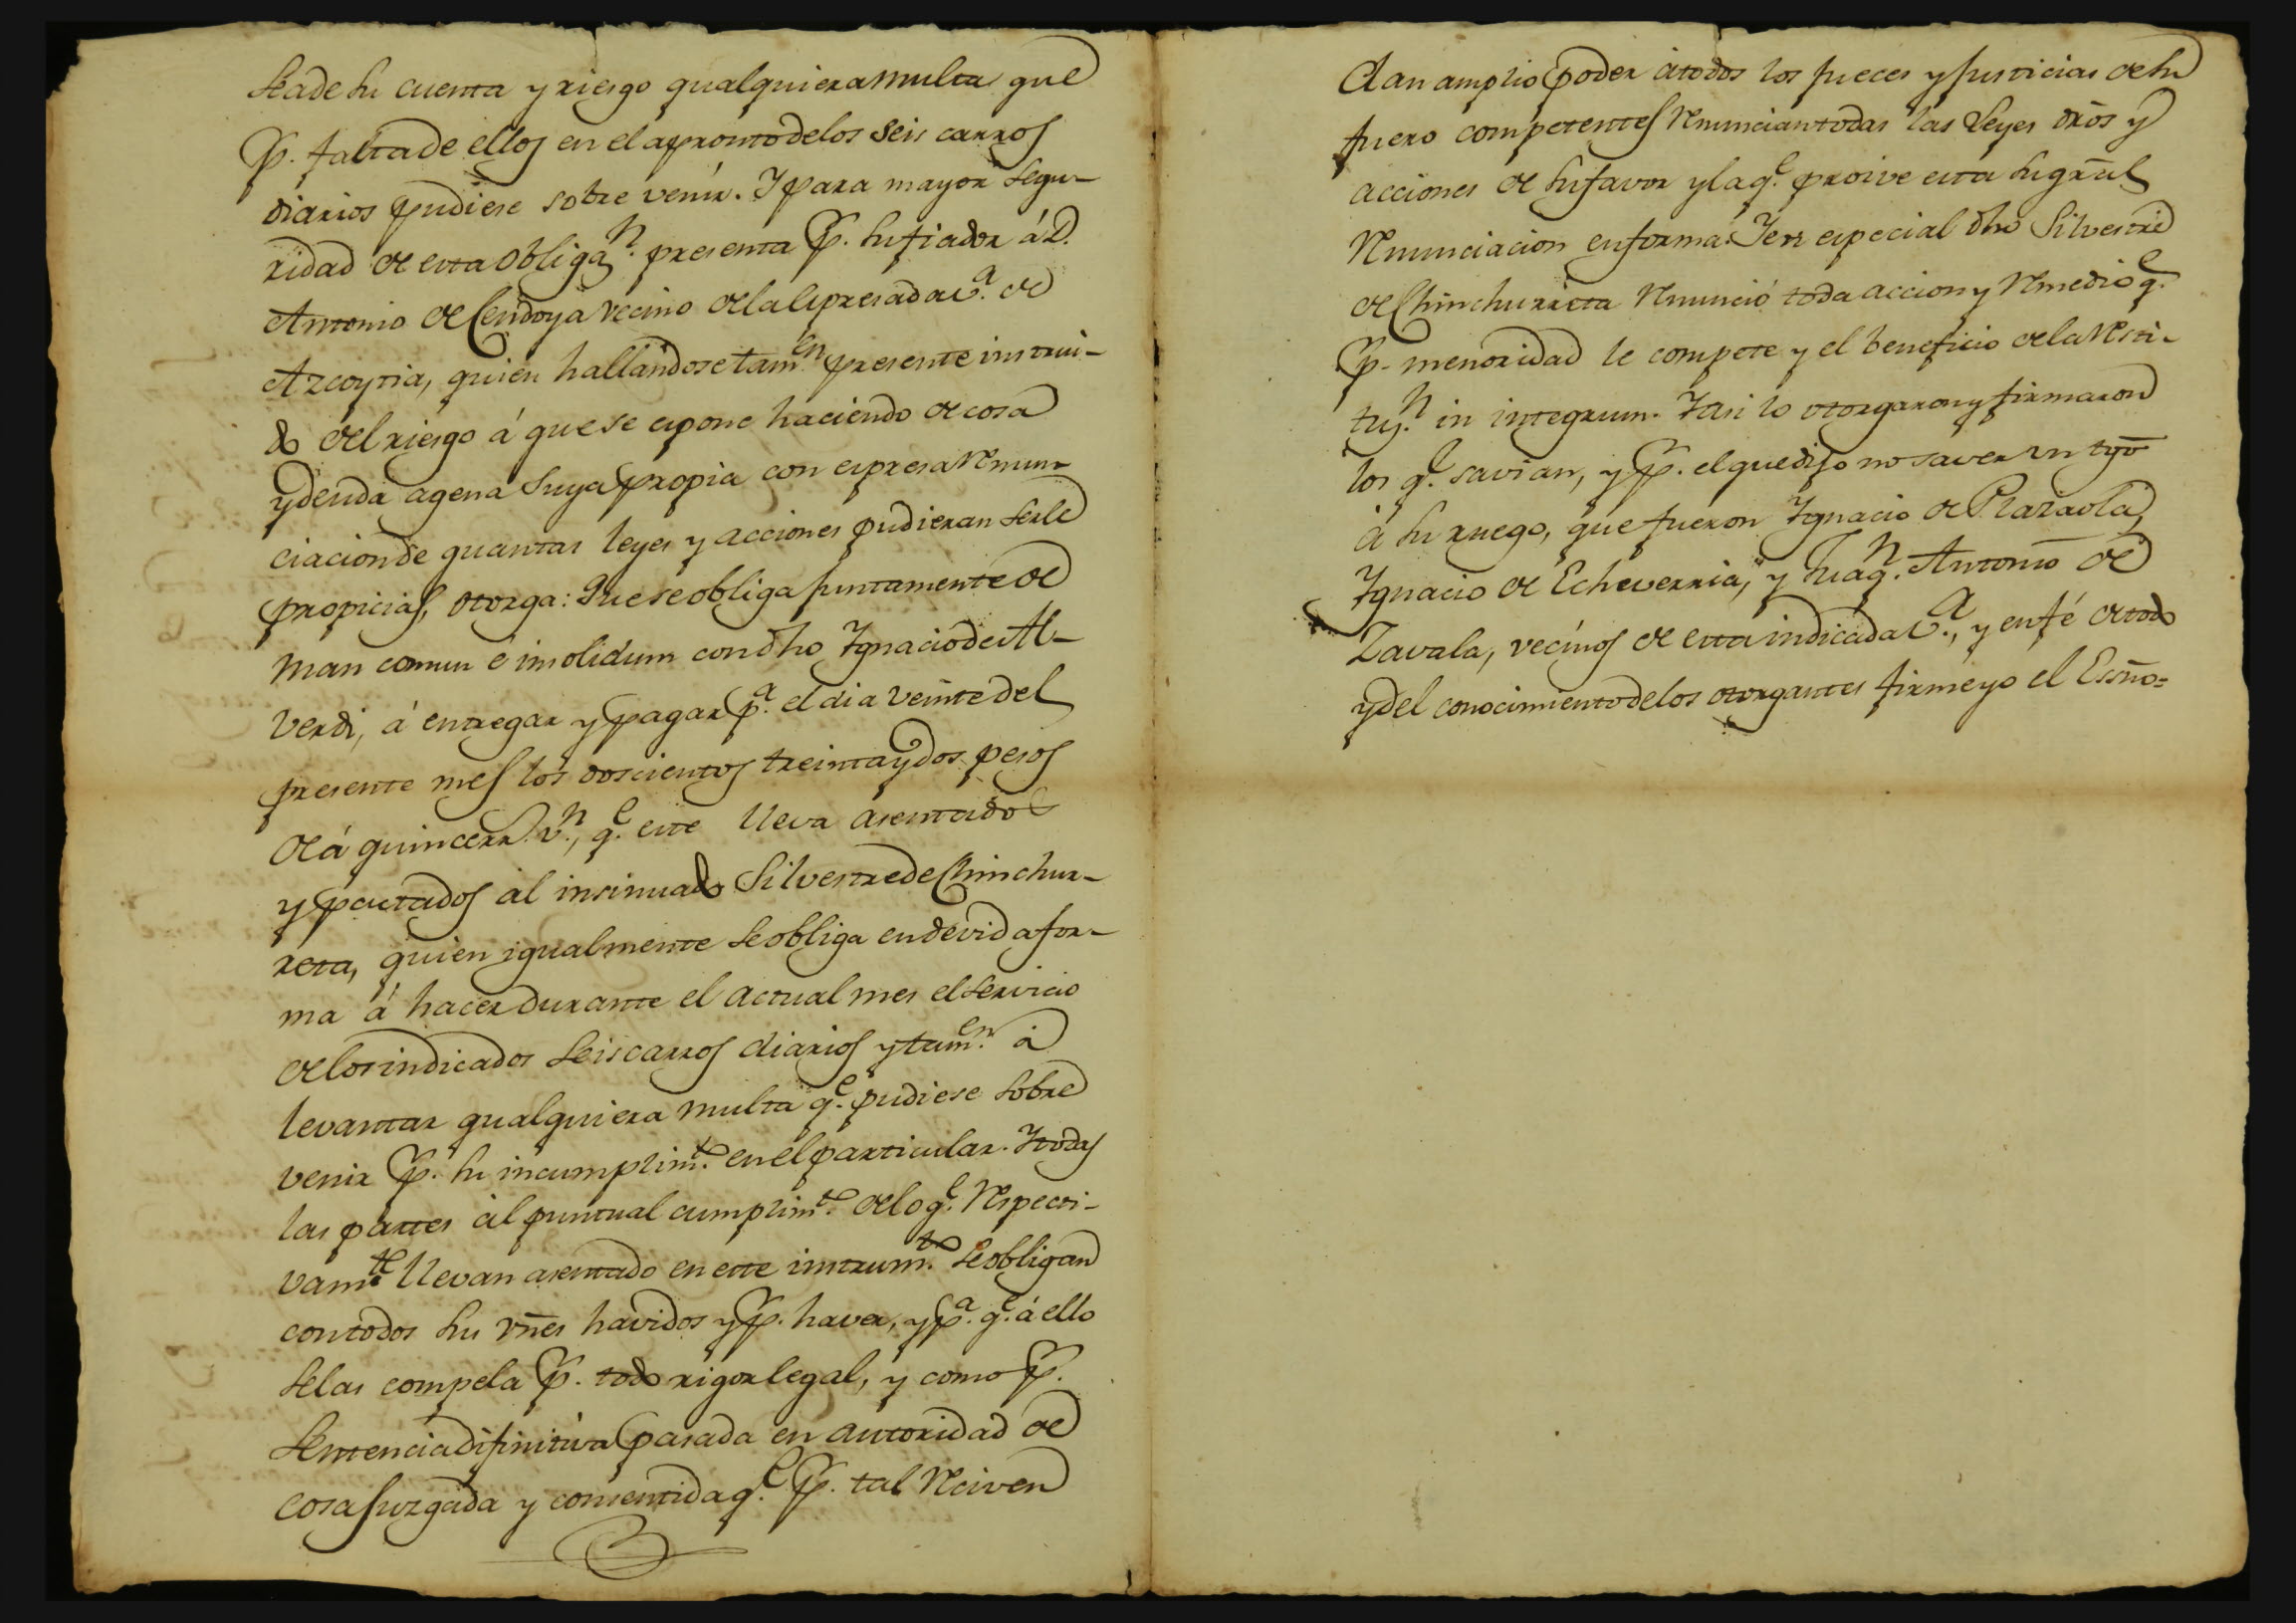 sea de su cuenta y riesgo qualquiera multa que
p. falta de ellos en el apronto de los seis carros
diarios pudiese sobre venir. Y para mayor segu-
ridad de esta obligaⁿ. presenta p. su fiador á D.
Antonio de Cendoya vecino de la espresada V.ª de
Azcoytia, quien hallandose tamᵉⁿ presente instrui-
do del riesgo á que se espone haciendo de cosa
y deuda agena suya propia con espresa renun-
ciacion de quantas leyes y acciones pudieran serle
propicias, otorga: Que se obliga juntamente de
man comun é insolidum con dho Ignacio de Al-
verdi, á entregar y pagar p.ª el dia veinte del
presente mes los doscientos treinta y dos pesos
de á quince rr.ˢ vⁿ., q.ᵉ este lleva asentados
y pactados al insinuado Silvestre de Chinchur-
reta, quien igualmente se obliga en devida for-
ma á hacer durante el actual mes el servicio
de los indicados seis carros diarios y tamᵉⁿ. á
levantar qualquiera multa q.ᵉ pudiese sobre
venir p. su incumplimᵗᵒ. en el particular. Y todas
las partes al puntual cumplimᵗᵒ. de lo q.ᵉ respecti-
vamᵗᵉ llevan asentado en este instrumᵗᵒ. se obligan
con todos sus vñes havidos y p. haver, y p.ª q.ᵉ á ello
se las compela p. todo rigor legal, y como p.
sentencia difinitiva pasada en autoridad de
cosa juzgada y consentida q.ᵉ p. tal reciven
dan amplio poder á todos los jueces y justicias de su
fuero competentes renuncian todas las leyes drõs y
acciones de su favor y la q.ᵉ proive esta su grñl
renunciacion en forma. Y en especial dho Silvestre
de Chinchurreta renunció toda accion y remedio q.ᵉ
p. menoridad le compete y el beneficio de la resti-
tuⁿ. in integrum. Y asi lo otorgaron y firmaron
los q.ᵉ savian, y p. el que dijo no saver un tgõ
á su ruego, que fueron Ignacio de Plazaola,
Ignacio de Echeverria, y Juaqⁿ. Antonio de
Zavala, vecinos de esta indicada V.ª, y en fé de todo
y del conocimiento de los otorgantes firmé yo el Essño=